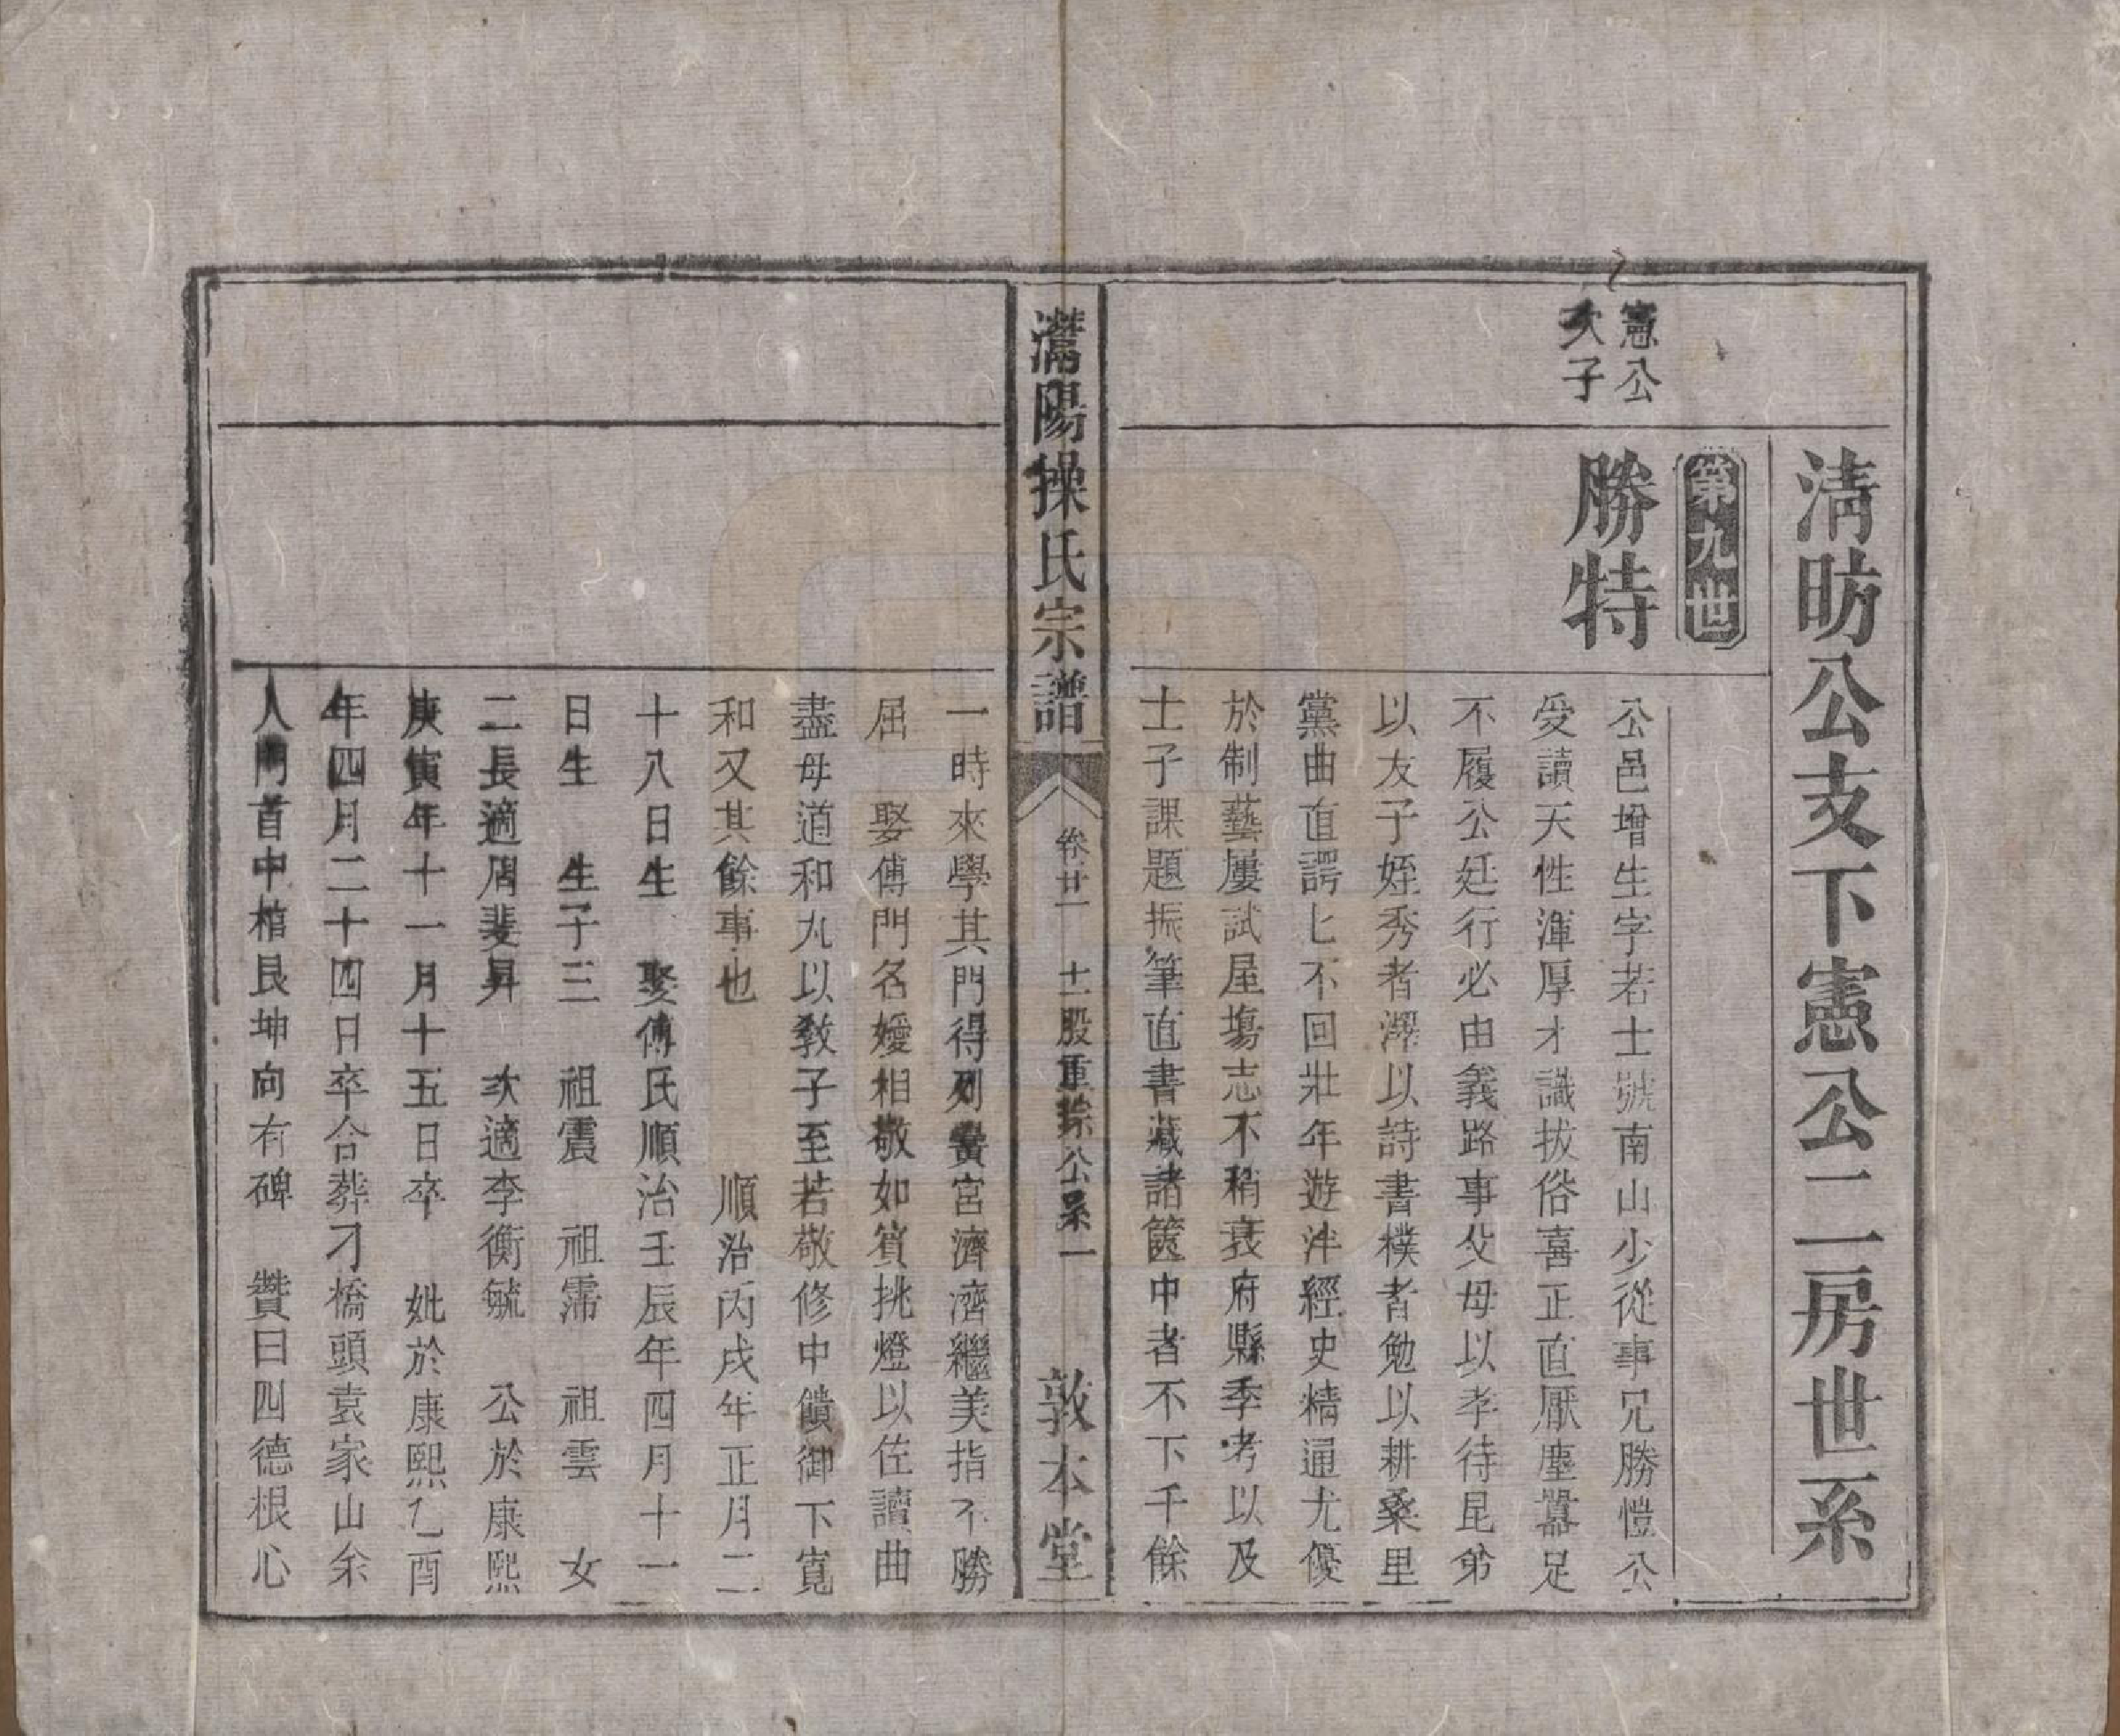 清昉公支下憲公二房世系
第九世
憲公
次子
勝特
公邑增生字若士號南山少從事兄勝愷公
受讀天性渾厚才識拔俗喜正直厭塵囂足
不履公廷行必由義路事父母以孝待昆弟
以友子姪秀者澤以詩書樸者勉以耕桑里
黨曲直諤匕不回壯年遊泮經史精通尤優
於制藝屢試屋塲志不稍衰府縣季考以及
士子課題振筆直書藏諸篋中者不下千餘
灊陽操氏宗譜
卷廿一
十一股重餘公系一
敦本堂
一時來學其門得列黌宮濟濟繼美指不勝
屈　娶傅門名嬡相敬如賓挑燈以佐讀曲
盡母道和丸以敎子至若敬修中饋御下寬
和又其餘事也　順治丙戌年正月二
十八日生　娶傅氏順治壬辰年四月十一
日生　生子三　祖震　祖霈　祖雲　女
二長適周斐昇　次適李衡毓　公於康熙
庚寅年十一月十五日卒　妣於康熙乙酉
年四月二十四日卒合葬刁橋頭袁家山余
人門首中棺艮坤向有碑　贊曰四德根心